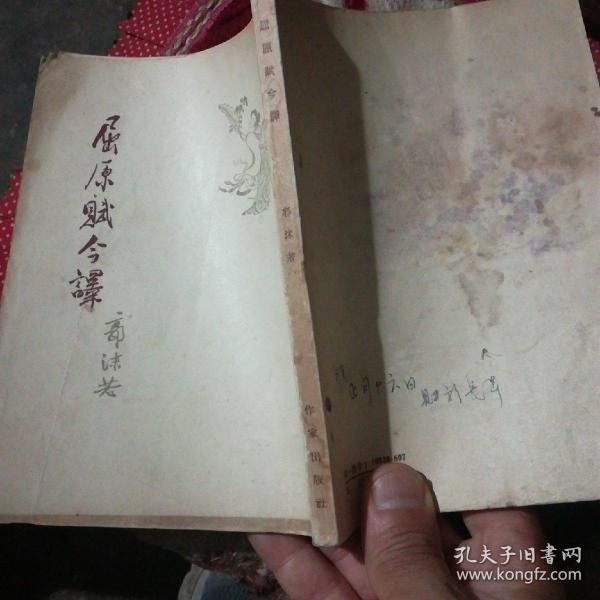 屈原賦今譯
郭沫若
屈原賦今譯
郭沫若
作家出版社
月十六日
孔夫子旧書网
www.kongfz.com